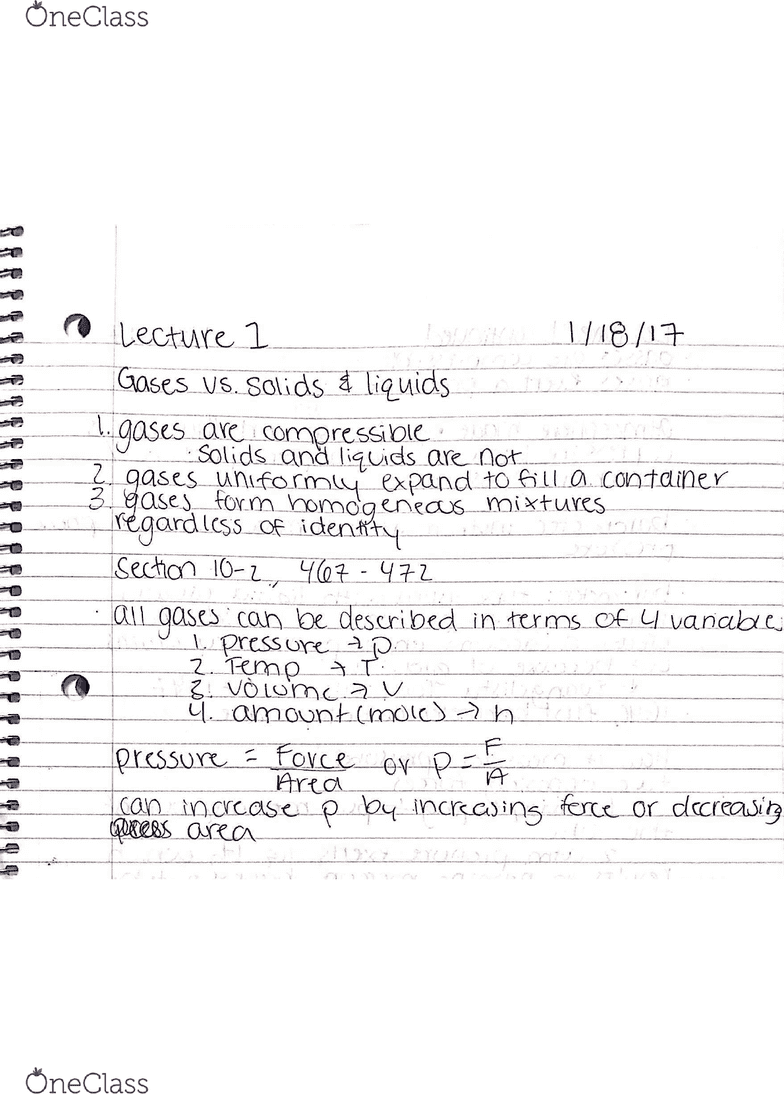 OneClass
Lecture 1 1/18/17
Gases vs. Solids & liquids
1. gases are compressible
· Solids and liquids are not
2. gases uniformly expand to fill a container
3. gases form homogeneous mixtures
regardless of identity
Section 10-2, 467 - 472
· all gases can be described in terms of 4 variable
1. pressure → p
2. Temp → T
3. volume → V
4. amount (mole) → n
pressure = Force/Area or p = F/A
can increase p by increasing force or decreasing
area
OneClass